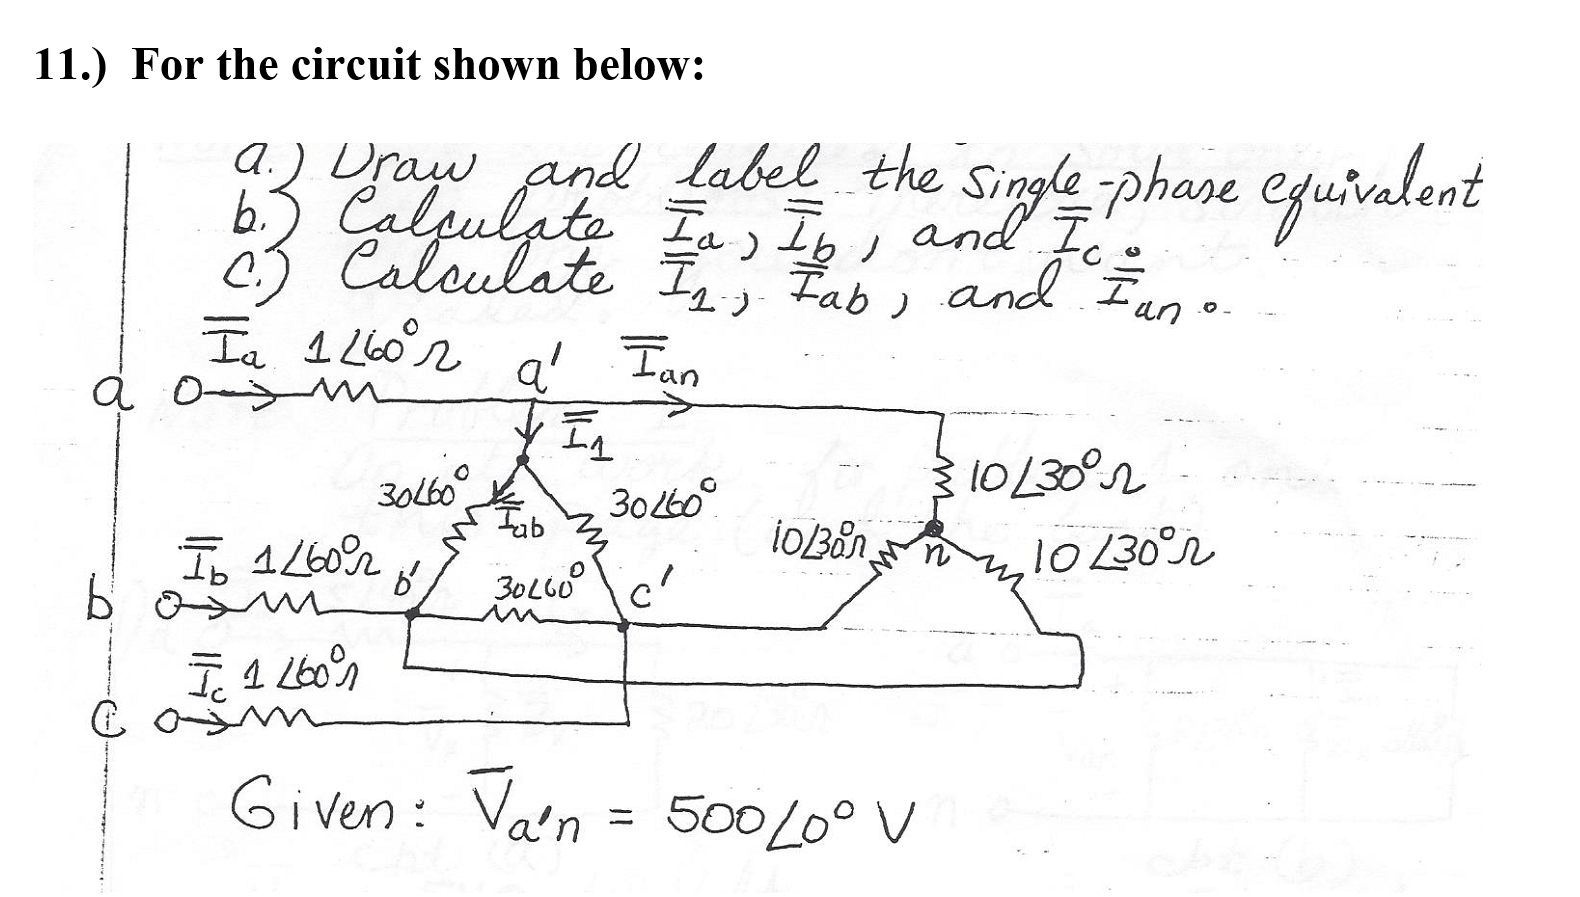 11.) For the circuit shown below:
a.) Draw and label the single-phase equivalent
b.) Calculate I̿a, I̿b, and I̿c.
c.) Calculate I̿1, I̿ab, and I̿an.
I̿a 1∠60°Ω a' I̿an
a
I̿1
30∠60° I̿ab 30∠60° 10∠30°Ω
I̿b 1∠60°Ω b' 30∠60° c' 10∠30°Ω n 10∠30°Ω
b
I̿c 1∠60°Ω
c
Given: V̅a'n = 500∠0° V